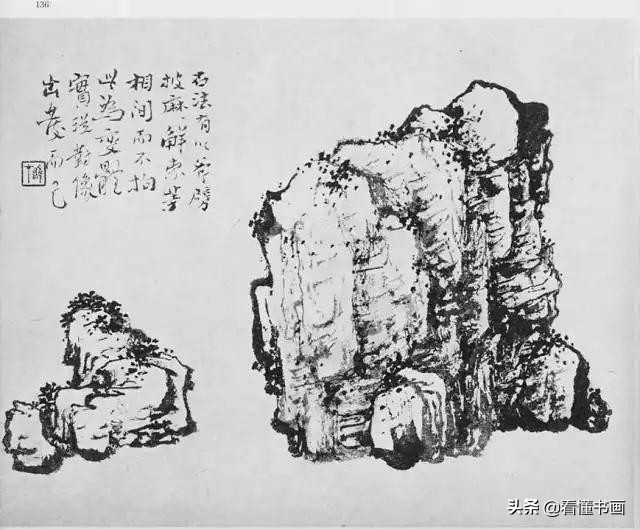 136
石法有以斧劈
披麻、解索等
相间而不拘
此為變體
實從對像
出發而已
头条 @看懂书画